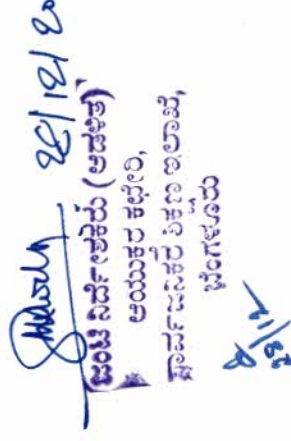 28/12/20
ಜಂಟಿ ನಿರ್ದೇಶಕರು (ಆಡಳಿತ)
ಆಯುಕ್ತರ ಕಛೇರಿ,
ಸಾರ್ವಜನಿಕ ಶಿಕ್ಷಣ ಇಲಾಖೆ,
ಬೆಂಗಳೂರು